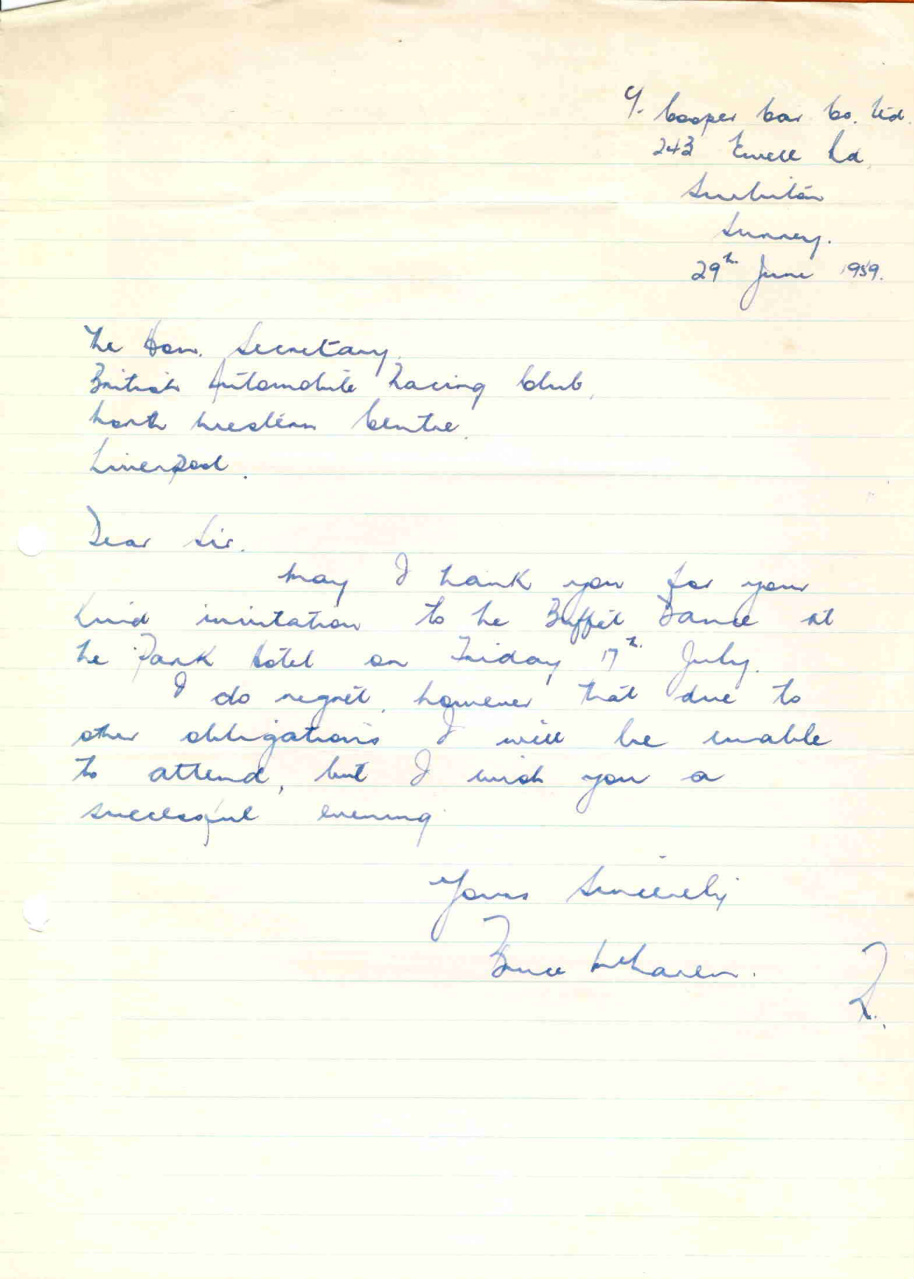 c/- Cooper Car Co. Ltd.
243 Ewell Rd,
Surbiton
Surrey.
29th June 1959.
The Hon. Secretary,
British Automobile Racing Club,
North Western Centre,
Liverpool.
Dear Sir.
May I thank you for your
kind invitation to the Buffet Dance at
the Park Hotel on Friday 17th July.
I do regret, however that due to
other obligations I will be unable
to attend, but I wish you a
successful evening
Yours Sincerely
Bruce McLaren.